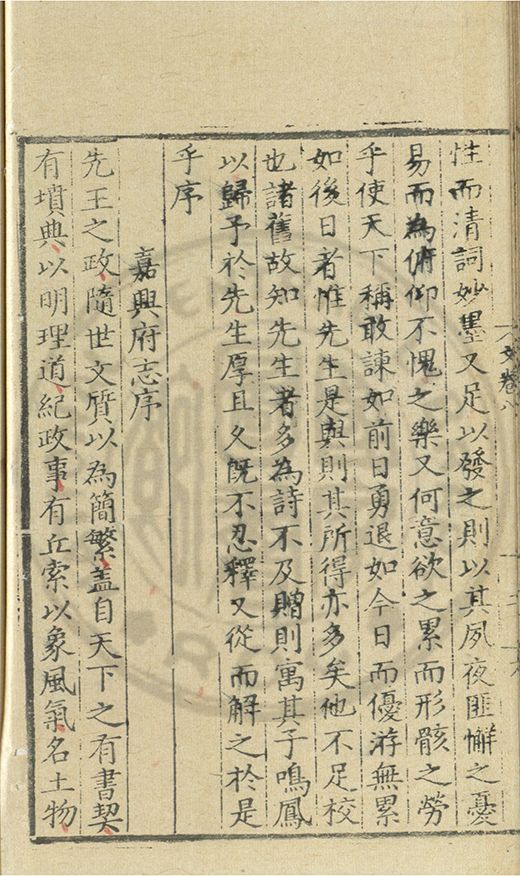 性而清詞妙墨又足以發之則以其夙夜匪懈之憂
易而為俯仰不愧之樂又何意欲之累而形骸之勞
乎使天下稱敢諫如前日勇退如今日而優游無累
如後日者惟先生是與則其所得亦多矣他不足校
也諸舊故知先生者多為詩不及贈則寓其子鳴鳳
以歸予於先生厚且久既不忍釋又從而解之於是
乎序
嘉興府志序
先王之政隨世文質以為簡繁盖自天下之有書契
有墳典以明理道紀政事有丘索以象風氣名土物
文卷八